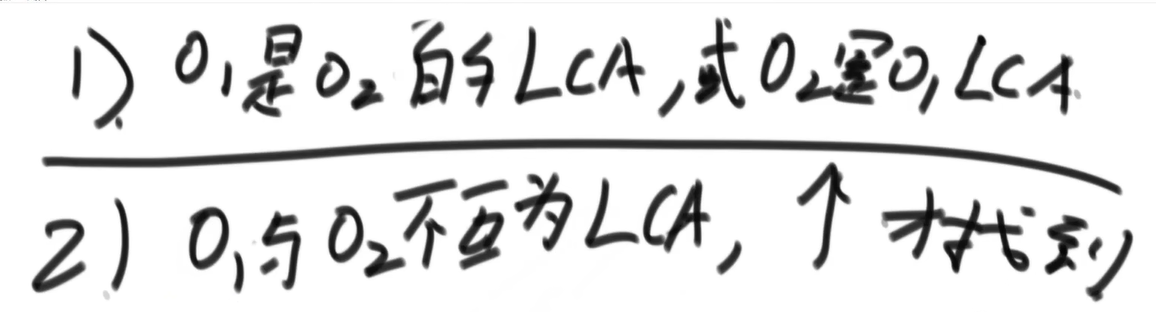 1) O₁是O₂的LCA,或O₂是O₁LCA
2) O₁与O₂不互为LCA, ↑ 找到